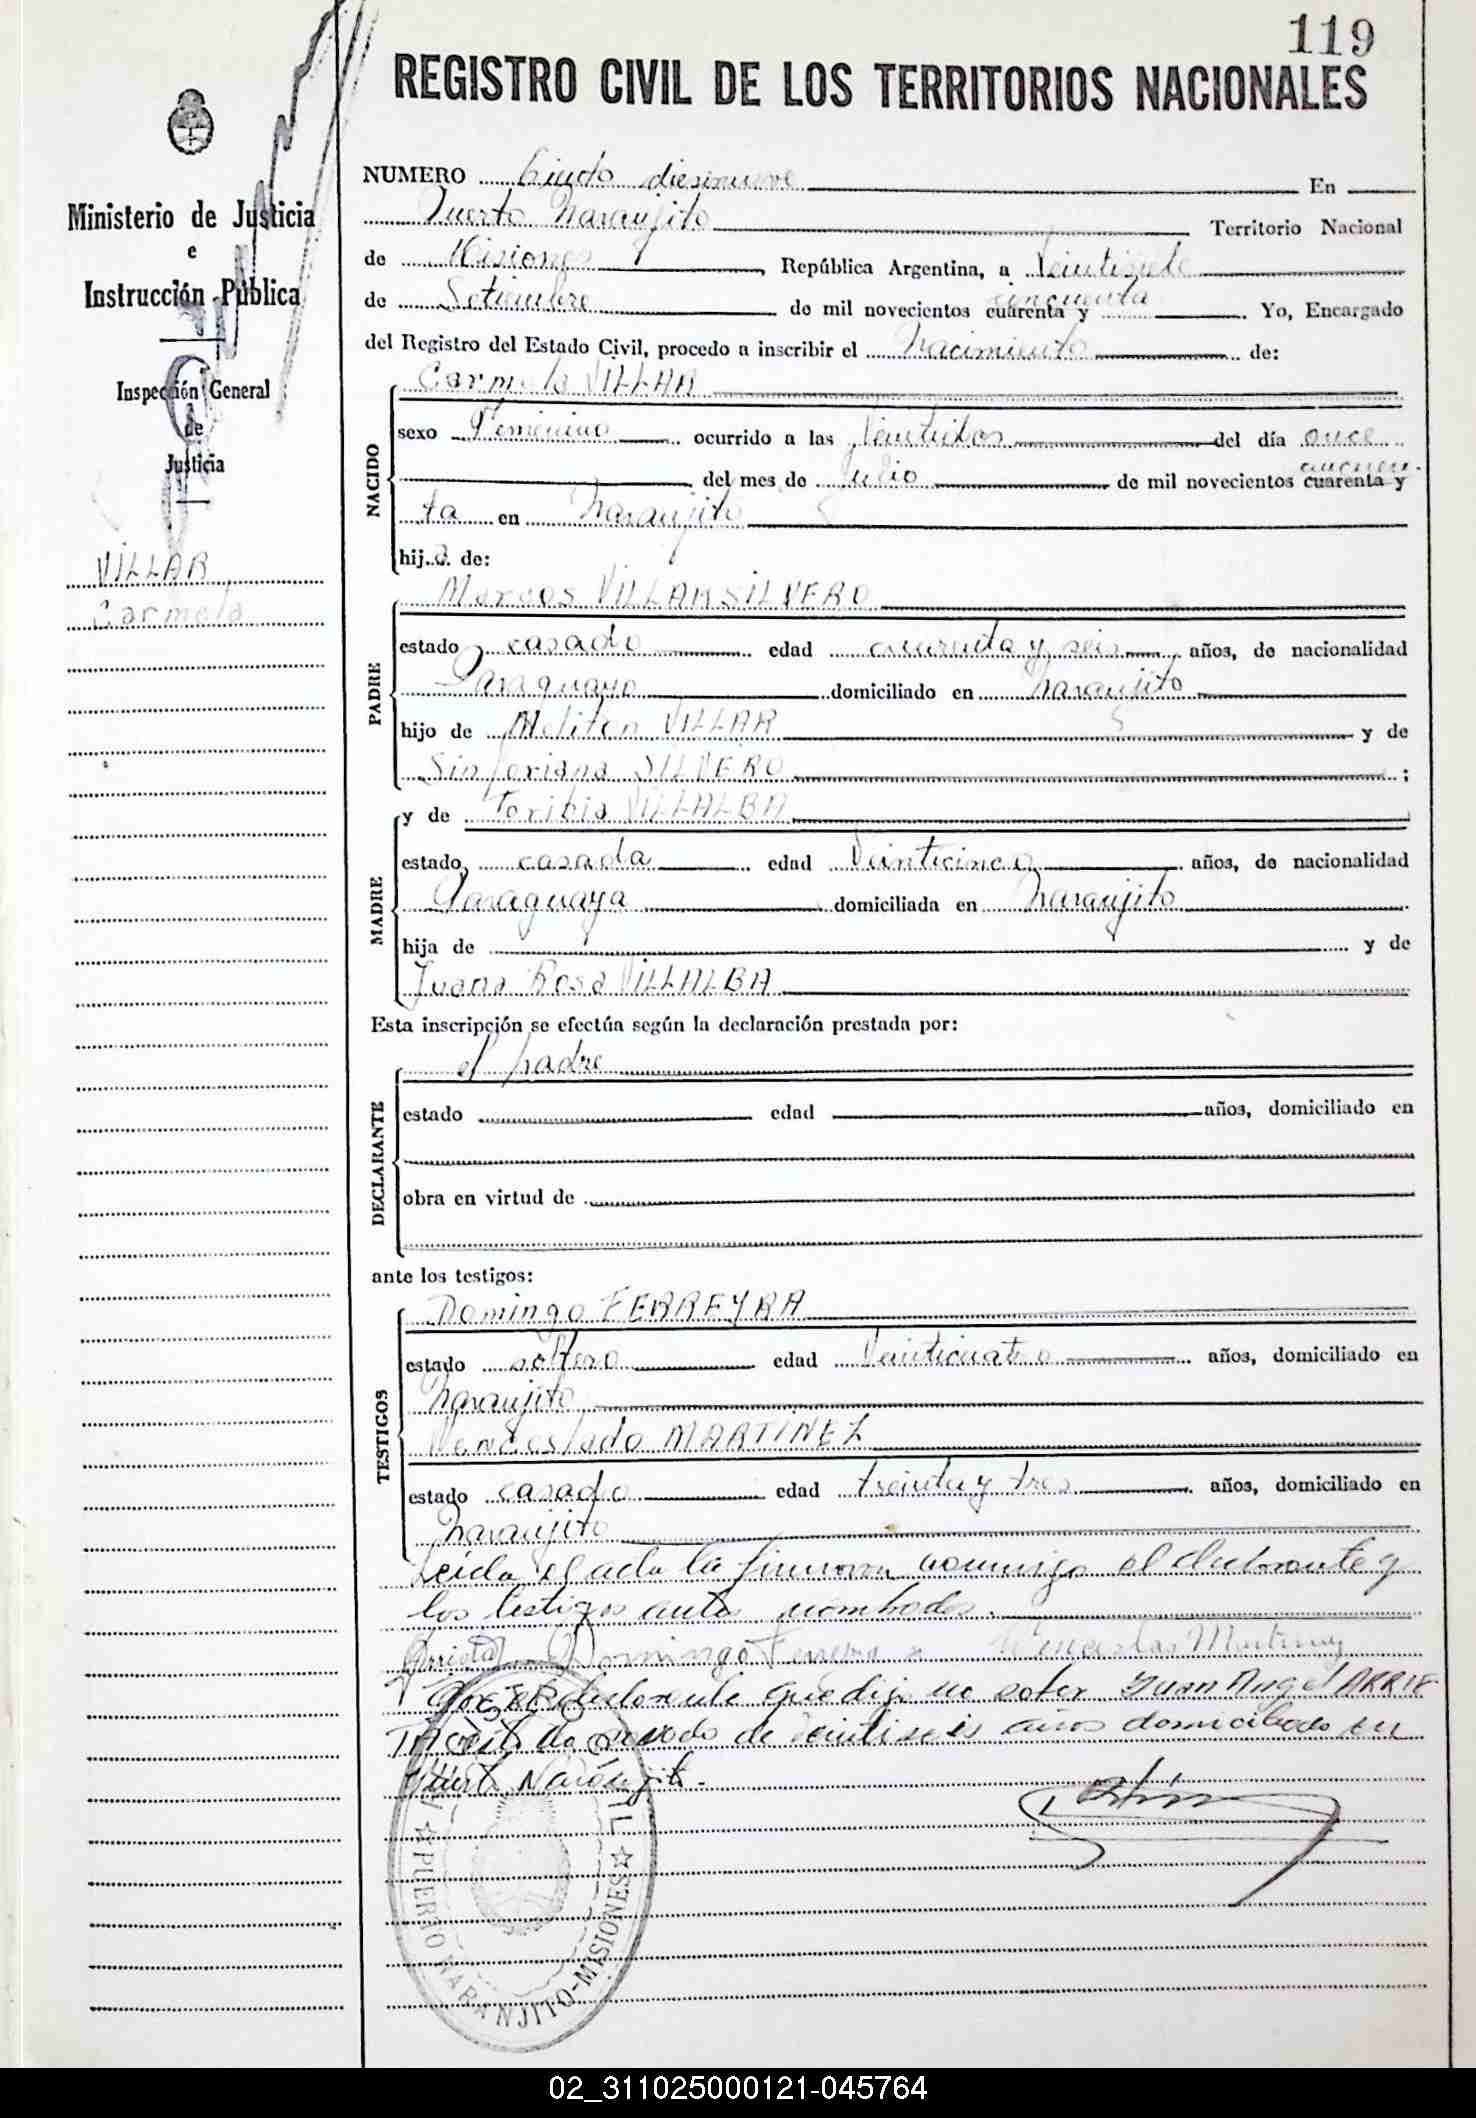 119
REGISTRO CIVIL DE LOS TERRITORIOS NACIONALES
Ministerio de Justicia
e
Instrucción Pública
Inspección General
de
Justicia
VILLAR
Carmela
NUMERO Ciento diesinueve En
Puerto Naranjito Territorio Nacional
de Misiones, República Argentina, a Veintisiete
de Setiembre de mil novecientos cuarenta y cincuenta. Yo, Encargado
del Registro del Estado Civil, procedo a inscribir el Nacimiento de:
NACIDO
Carmela VILLAR
sexo Femenino ocurrido a las Veintidos del día once
del mes de Julio de mil novecientos cuarenta y cincuen-
ta en Naranjito
hija de:
PADRE
Marcos VILLAR SILVERO
estado casado edad cuarenta y seis años, de nacionalidad
Paraguayo domiciliado en Naranjito
hijo de Meliton VILLAR y de
Sinforiana SILVERO;
MADRE
y de Toribia VILLALBA
estado casada edad Veinticinco años, de nacionalidad
Paraguaya domiciliada en Naranjito
hija de y de
Juana Rosa VILLALBA
Esta inscripción se efectúa según la declaración prestada por:
DECLARANTE
el padre
estado edad años, domiciliado en
obra en virtud de
ante los testigos:
TESTIGOS
Domingo FERREYRA
estado soltero edad Veinticuatro años, domiciliado en
Naranjito
Wenceslado MARTINEZ
estado casado edad treinta y tres años, domiciliado en
Naranjito
Leida el acta la firmaron conmigo el declarante y
los testigos antes nombrados.
Arrieta Domingo Ferreira Wenceslas Martinez
Por el declarante que dijo no saber Juan Angel ARRIE
TA de estado casado de veintiseis años domiciliado en
Puerto Naranjito.
PUERTO NARANJITO-MISIONES
02_311025000121-045764